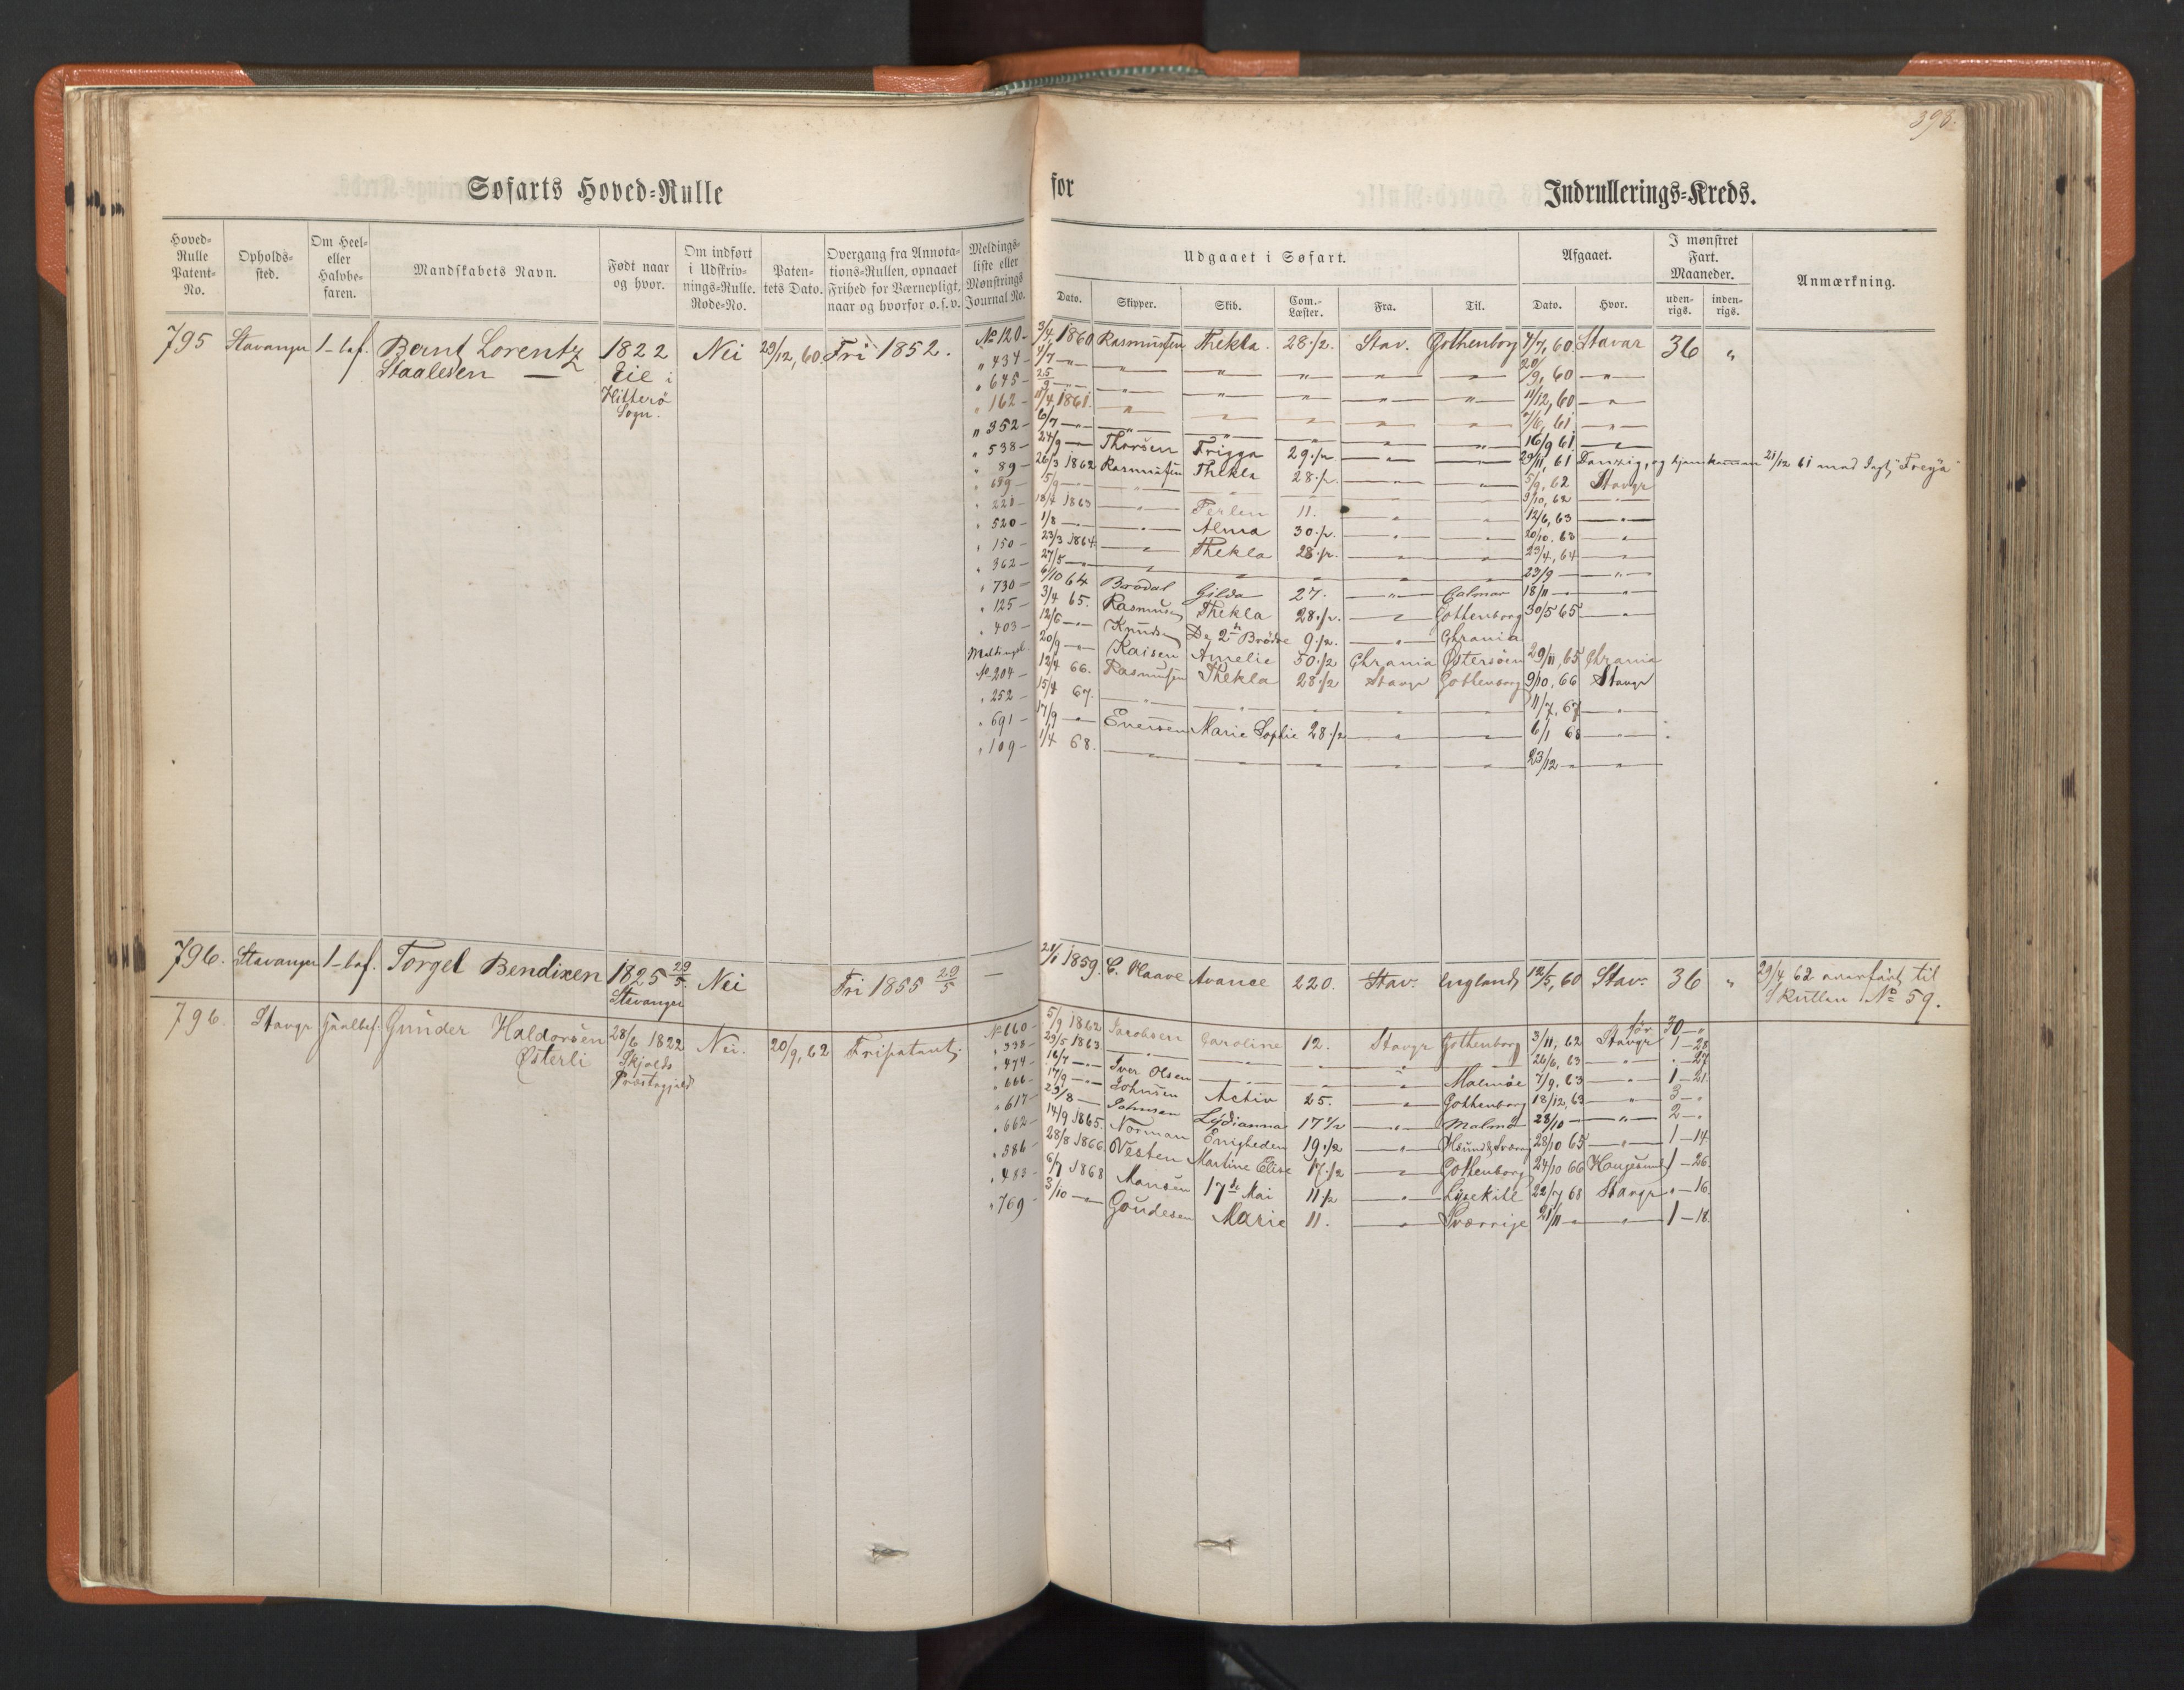 393.
Søfarts Hoved-Rulle for Indrullerings-Kreds.
Hoved-Rulle Patent-No.
Opholds-sted.
Om Heel- eller Halvbe-faren.
Mandskabets Navn.
Født naar og hvor.
Om indført i Udskriv-nings-Rulle. Rode-No.
Paten-tets Dato.
Overgang fra Annota-tions-Rullen, opnaaet Frihed for Værnepligt, naar og hvorfor o.s.v.
Meldings-liste eller Mønstrings Journal No.
Udgaaet i Søfart.
Dato. Skipper. Skib. Com.-Læster. Fra. Til.
Afgaaet.
Dato. Hvor.
I mønstret Fart. Maaneder.
uden-rigs. inden-rigs.
Anmærkning.
795 Stavanger 1-bef. Bernt Lorentz 1822 Nei 29/12, 60. Fri 1852. No 120- 3/4 1860 Rasmussen Thekla. 28 1/2. Stav. Gothenborg 7/7, 60. Stavar 36 "
Staalesen — Eie i
Hitterø
Sogn.
" 434- 4/7 -"- " " " " " 20/9, 60 "
" 645- 25/9 -"- " " " " " 11/12, 60 "
" 162- 1861. " " " " " 7/6, 61 "
" 352- 6/7 -"- " " " " " 16/9 61 "
" 538- 24/9 - Thorsen Frigga 29 1/2 " " 29/11, 61 Danzig, og hjemkommen 21/12 61 med Jagt "Freya"
" 89- 26/3 1862 Rasmussen Thekla 28 1/2. " " 5/9, 62 Stavgr
" 689- 5/9 -"- " " " " " 9/10, 62 "
" 221- 18/4 1863 " Perlen 11. " " 12/6, 63 "
" 520- 1/8 -"- " Alma 30 1/2. " " 20/10. 63 "
" 150- 23/3 1864. " Thekla 28 1/2. " " 23/4, 64 "
" 362- 27/5 -"- " " " " " 23/9 - "
" 730- 6/10 64 Brødal Gilda 27. " Calmar 18/11 - "
" 125- 3/4 65. Rasmusen Thekla 28 1/2. " Gothenborg 30/5 65 "
" 403- 12/6 -"- Knudsen De 2de Brødre 9 1/2. " Chrania
20/9 -"- Kaisen Amelie 50 1/2 Chrania Østersøen 29/11, 65 Chrania
No 204- 12/4 66. Rasmussen Thekla 28 1/2 Stavgr Gothenborg 9/10, 66 Stavgr
" 252- 15/4 67. " " " " " 11/7, 67 "
" 691- 17/9 -"- Evensen Marie Sophie 28 1/2 " " 6/1 68 "
" 109- 1/4 68. " " " " " 23/12 - "
796. Stavanger 1-bef. Torgel Bendixen 1825 29/5. Nei Fri 1855 29/5 — 21/1 1859. C. Haave Avance 220. Stav. England 12/5, 60 Stav. 36 " 29/4 62 overført til
Stavanger S Rullen No 59.
796. Stavgr Heelbef. Gunder Haldorsen 28/6 1822 Nei. 20/9, 62 Fripatent. No 660- 5/9 1862 Jacobsen Caroline 12. Stavgr Gothenborg 3/11, 62 Stavgr før 30-"
Østerli Skjolds
Præstegjeld
1-28
" 338- 23/5 1863. " " " " " 26/6, 63 " "-27
" 474- 16/7 -"- Iver Olsen " " " Malmöe 7/9, 63 " 1-21.
" 666- 17/9 -"- Johnsen Activ 25. " Gothenborg 18/12, 63 " 3-"
" 617- 23/8 - Johnsen Lydianna 17 1/2 " Malmø 28/10 - " 2-"
" 662- 14/9 1865. Norman Enigheden 19 1/2 " 28/10 65 " 1-14
" 586- 28/8 1866. Nesten Martine Elise 17 1/2 " Gothenborg 24/10 66 Haugesund 1-26.
" 483- 6/7 1868 Mansen 17de Mai 11 1/2 " Lysekill 22/7 68 Stavgr "-16.
" 769- 3/10 -"- Goudesen Marie 11. " Sverrige 21/11 - " 1-18.